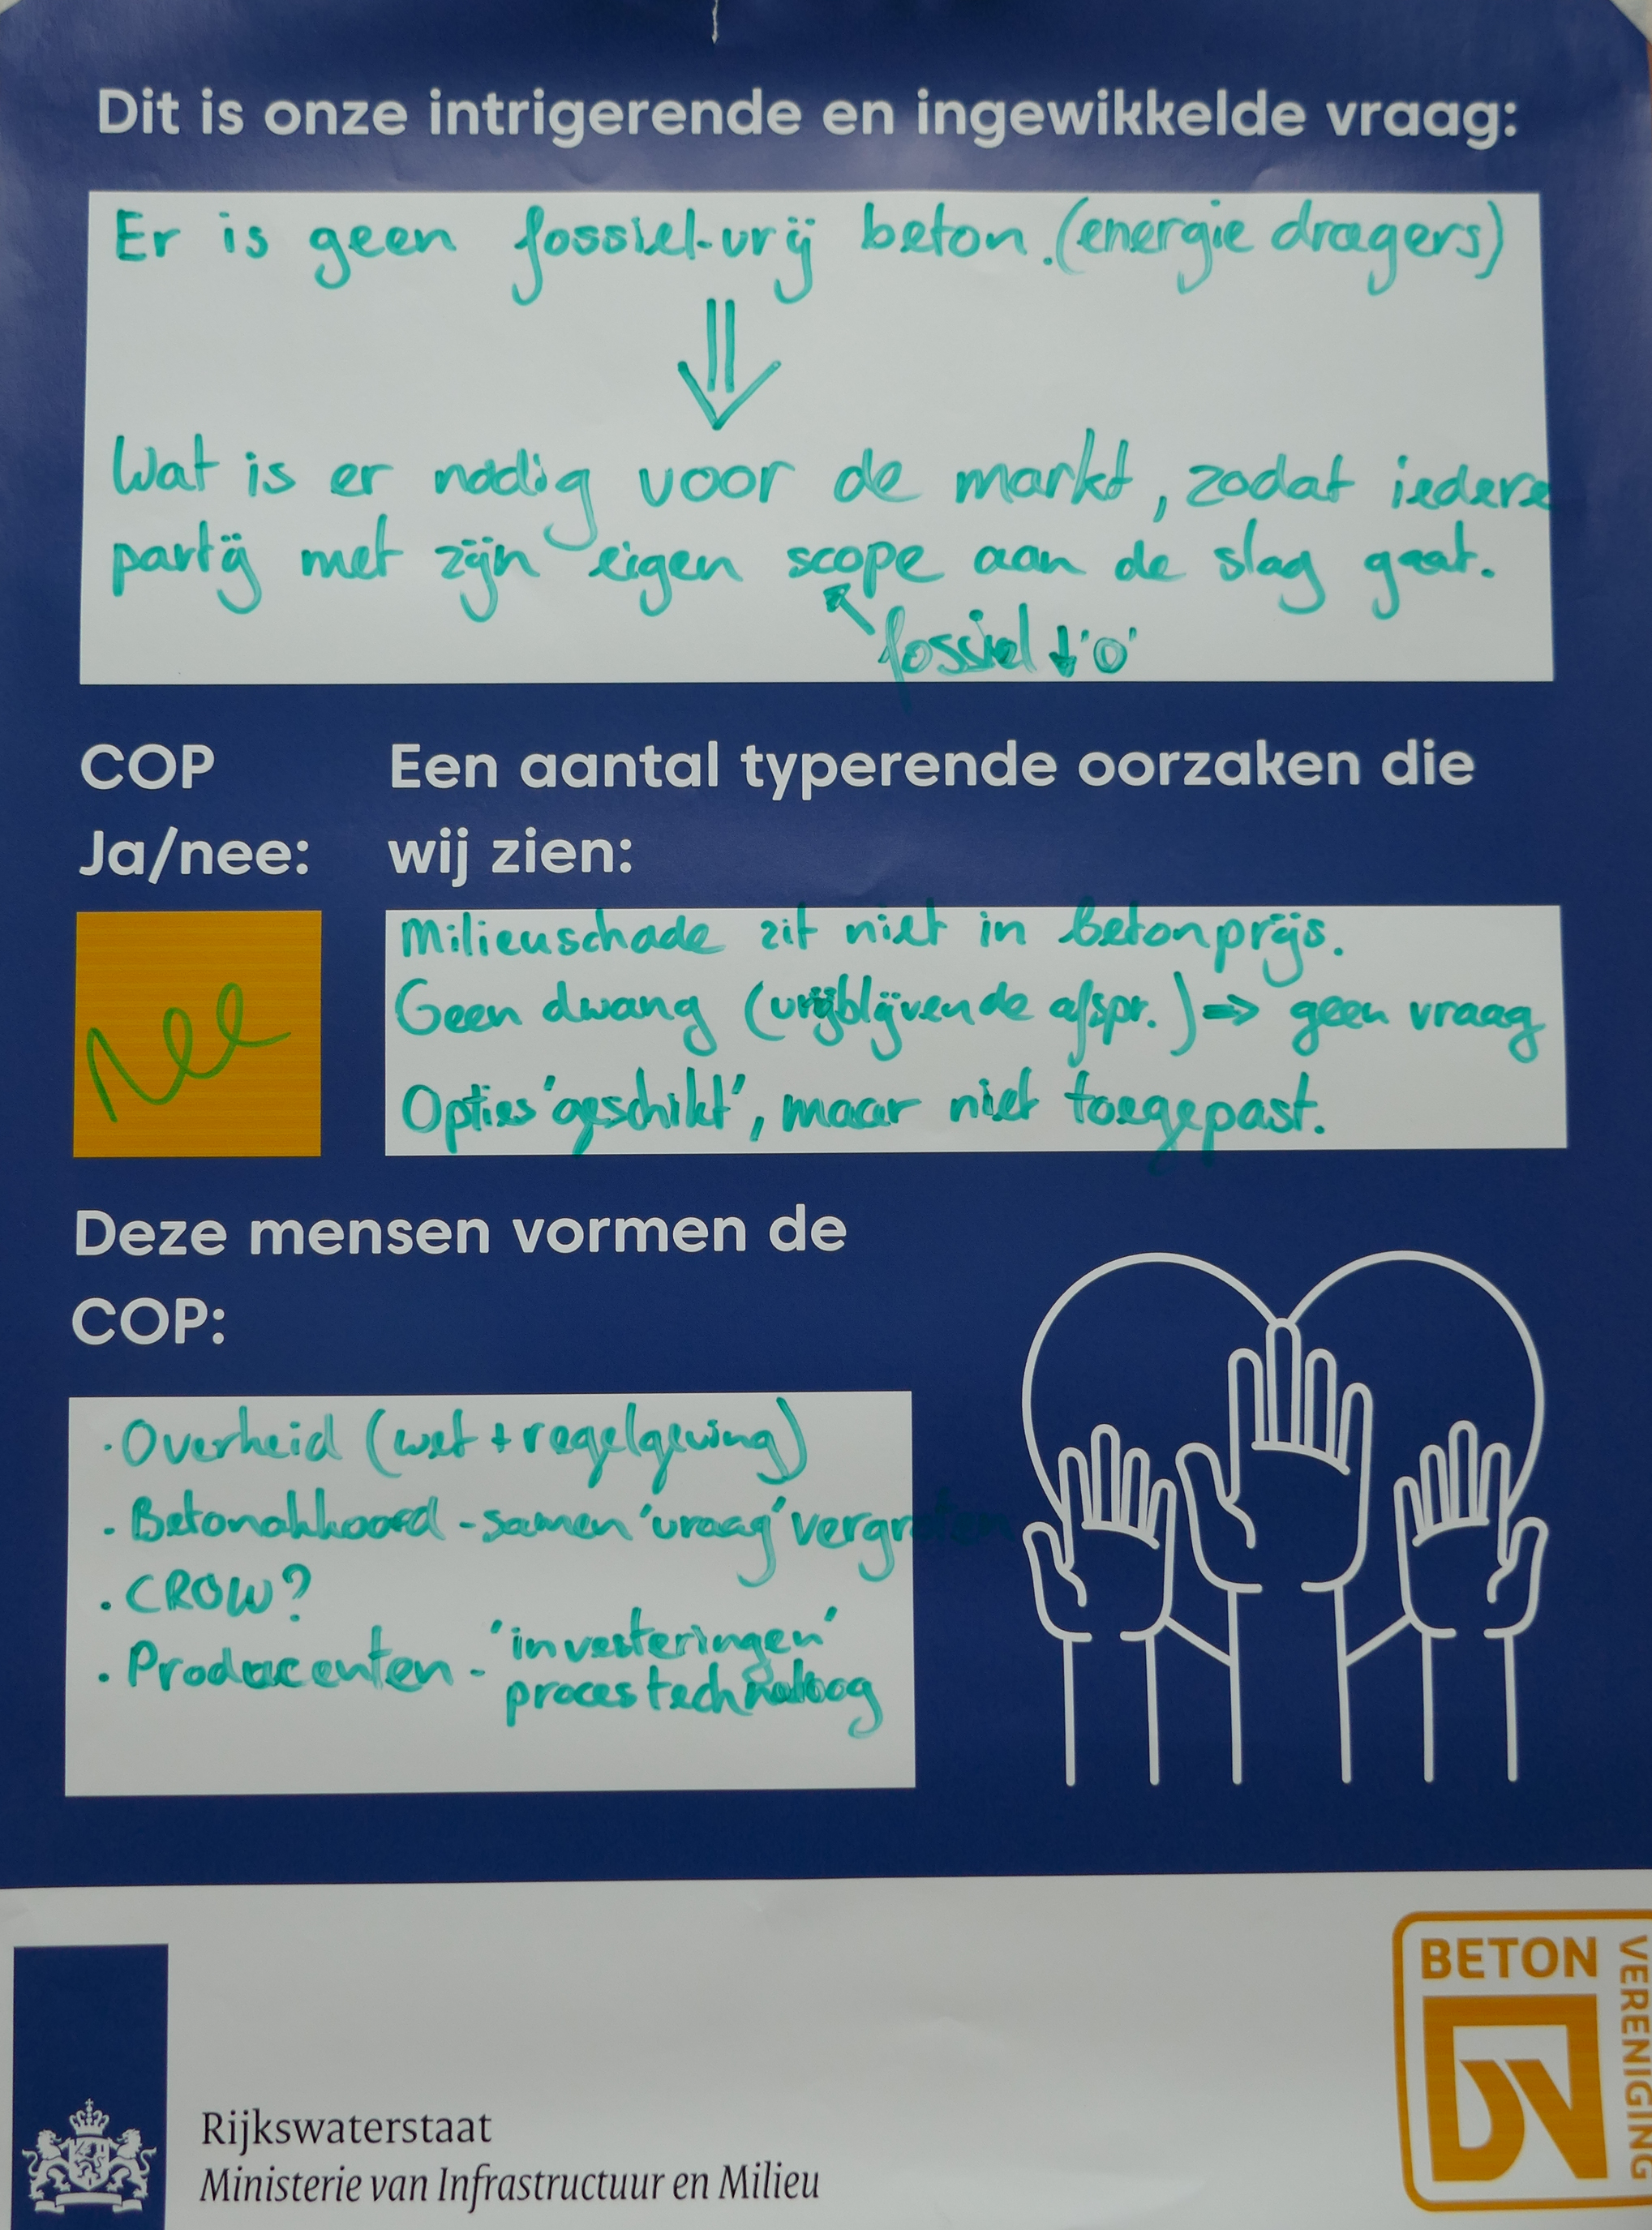 Dit is onze intrigerende en ingewikkelde vraag:
Er is geen fossiel-vrij beton. (energie dragers)
Wat is er nodig voor de markt, zodat iedere
partij met zijn eigen scope aan de slag gaat.
fossiel ↓ '0'
COP
Ja/nee:
Nee
Een aantal typerende oorzaken die
wij zien:
Milieuschade zit niet in betonprijs.
Geen dwang (vrijblijvende afspr.) => geen vraag
Opties 'geschikt', maar niet toegepast.
Deze mensen vormen de
COP:
· Overheid (wet + regelgeving)
· Betonakkoord - samen 'vraag' vergroten
· CROW?
· Producenten - 'investeringen'
procestechnoloog
Rijkswaterstaat
Ministerie van Infrastructuur en Milieu
BETON
VERENIGING